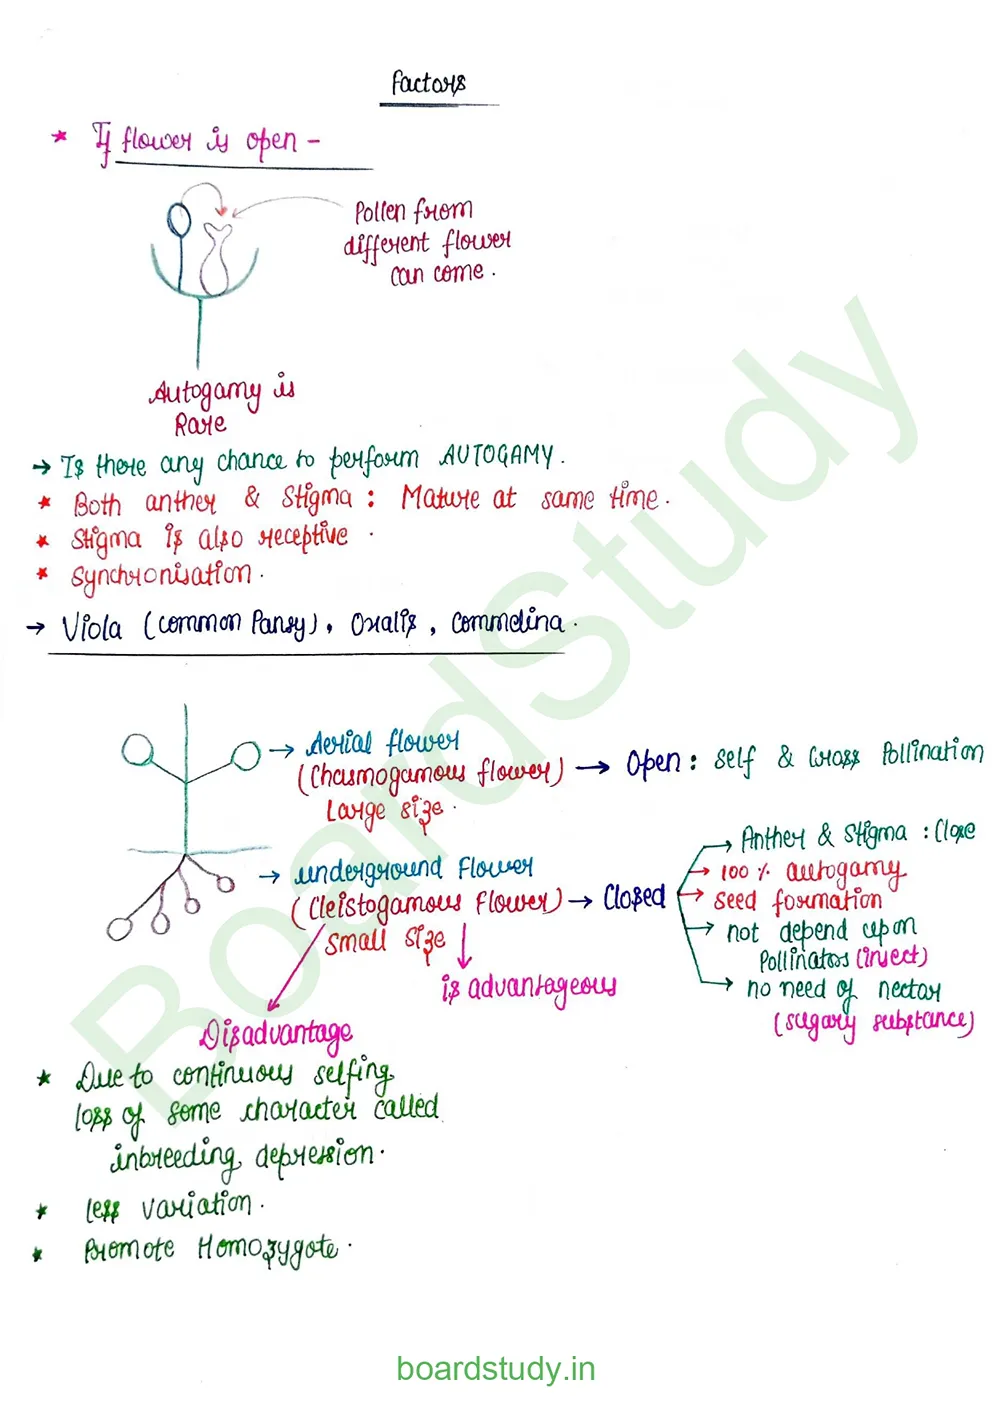 Factors
* If flower is open -
Pollen from
different flower
can come.
Autogamy is
Rare
→ Is there any chance to perform AUTOGAMY.
* Both anther & Stigma : Mature at same time.
* Stigma is also receptive.
* Synchronisation.
→ Viola (common Pansy), Oxalis, Commelina.
→ Aerial flower
(Chasmogamous flower) → Open : Self & Cross Pollination
Large size.
→ underground Flower
(Cleistogamous Flower) → Closed
Small size
→ Anther & Stigma : Close
→ 100 % autogamy
→ Seed formation
→ not depend upon
Pollinators (insect)
→ no need of nectar
(sugary substance)
is advantageous
Disadvantage
* Due to continuous selfing
loss of some character called
inbreeding depression.
* Less variation.
* Promote Homozygote.
BoardStudy
boardstudy.in